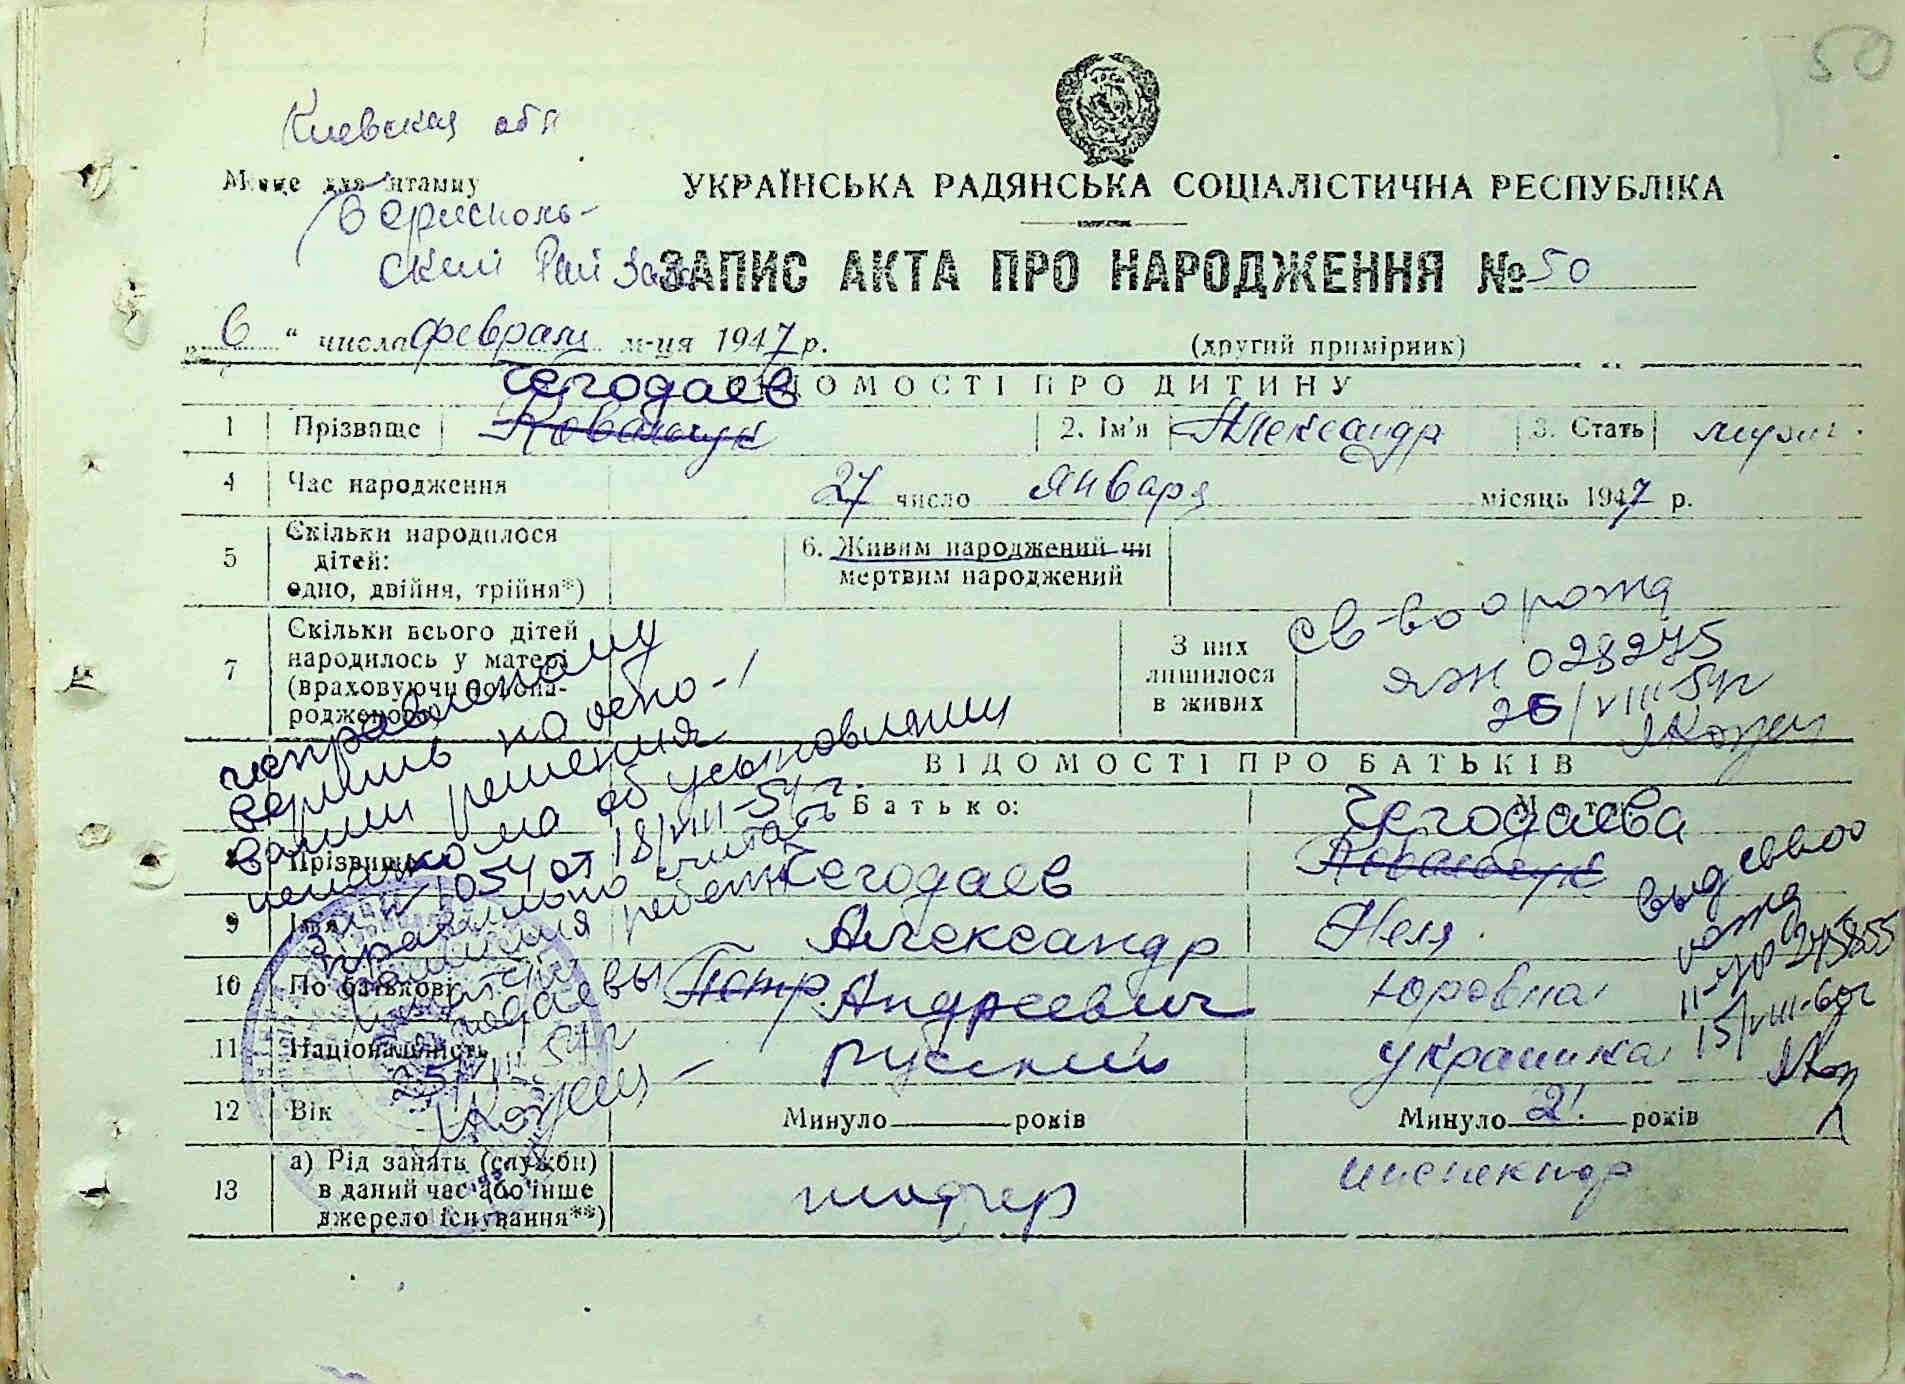 50
Киевская обл
Місце для штампу
УКРАЇНСЬКА РАДЯНСЬКА СОЦІАЛІСТИЧНА РЕСПУБЛІКА
Борисполь-
ский Рай Загс
ЗАПИС АКТА ПРО НАРОДЖЕННЯ № 50
„6“ числа февраля м-ця 1947 р.
(другий примірник)
Чегодаев
ВІДОМОСТІ ПРО ДИТИНУ
1 Прізвище Ковальчук 2. Ім'я Александр 3. Стать мужс.
4 Час народження 27 число января місяць 1947 р.
5 Скільки народилося дітей: одно, двійня, трійня*)
6. Живим народжений чи мертвим народжений
7 Скільки всього дітей народилось у матері (враховуючи новонародженого)
З них лишилося в живих
св-во о рожд
ЯЖ 029275
26/VIII-54г
исправленому
верить на осно-
вании решения
исполкома об усыновлении
за N 1054 от 18/VIII-54 г.
правильно считать
Чегодаевы
25/VIII 54г
ВІДОМОСТІ ПРО БАТЬКІВ
Батько: Мати:
Чегодаева
8 Прізвище Чегодаев Ковальчук
9 Ім'я Александр Неля
10 По батькові Петр. Андреевич Юровна
11 Національність русский украинка
12 Вік Минуло років Минуло 21. років
13 а) Рід занять (служби) в даний час або інше джерело існування**) шофер инспектор
выд св-во о
рожд
II-УР 245855
15/VIII-60г